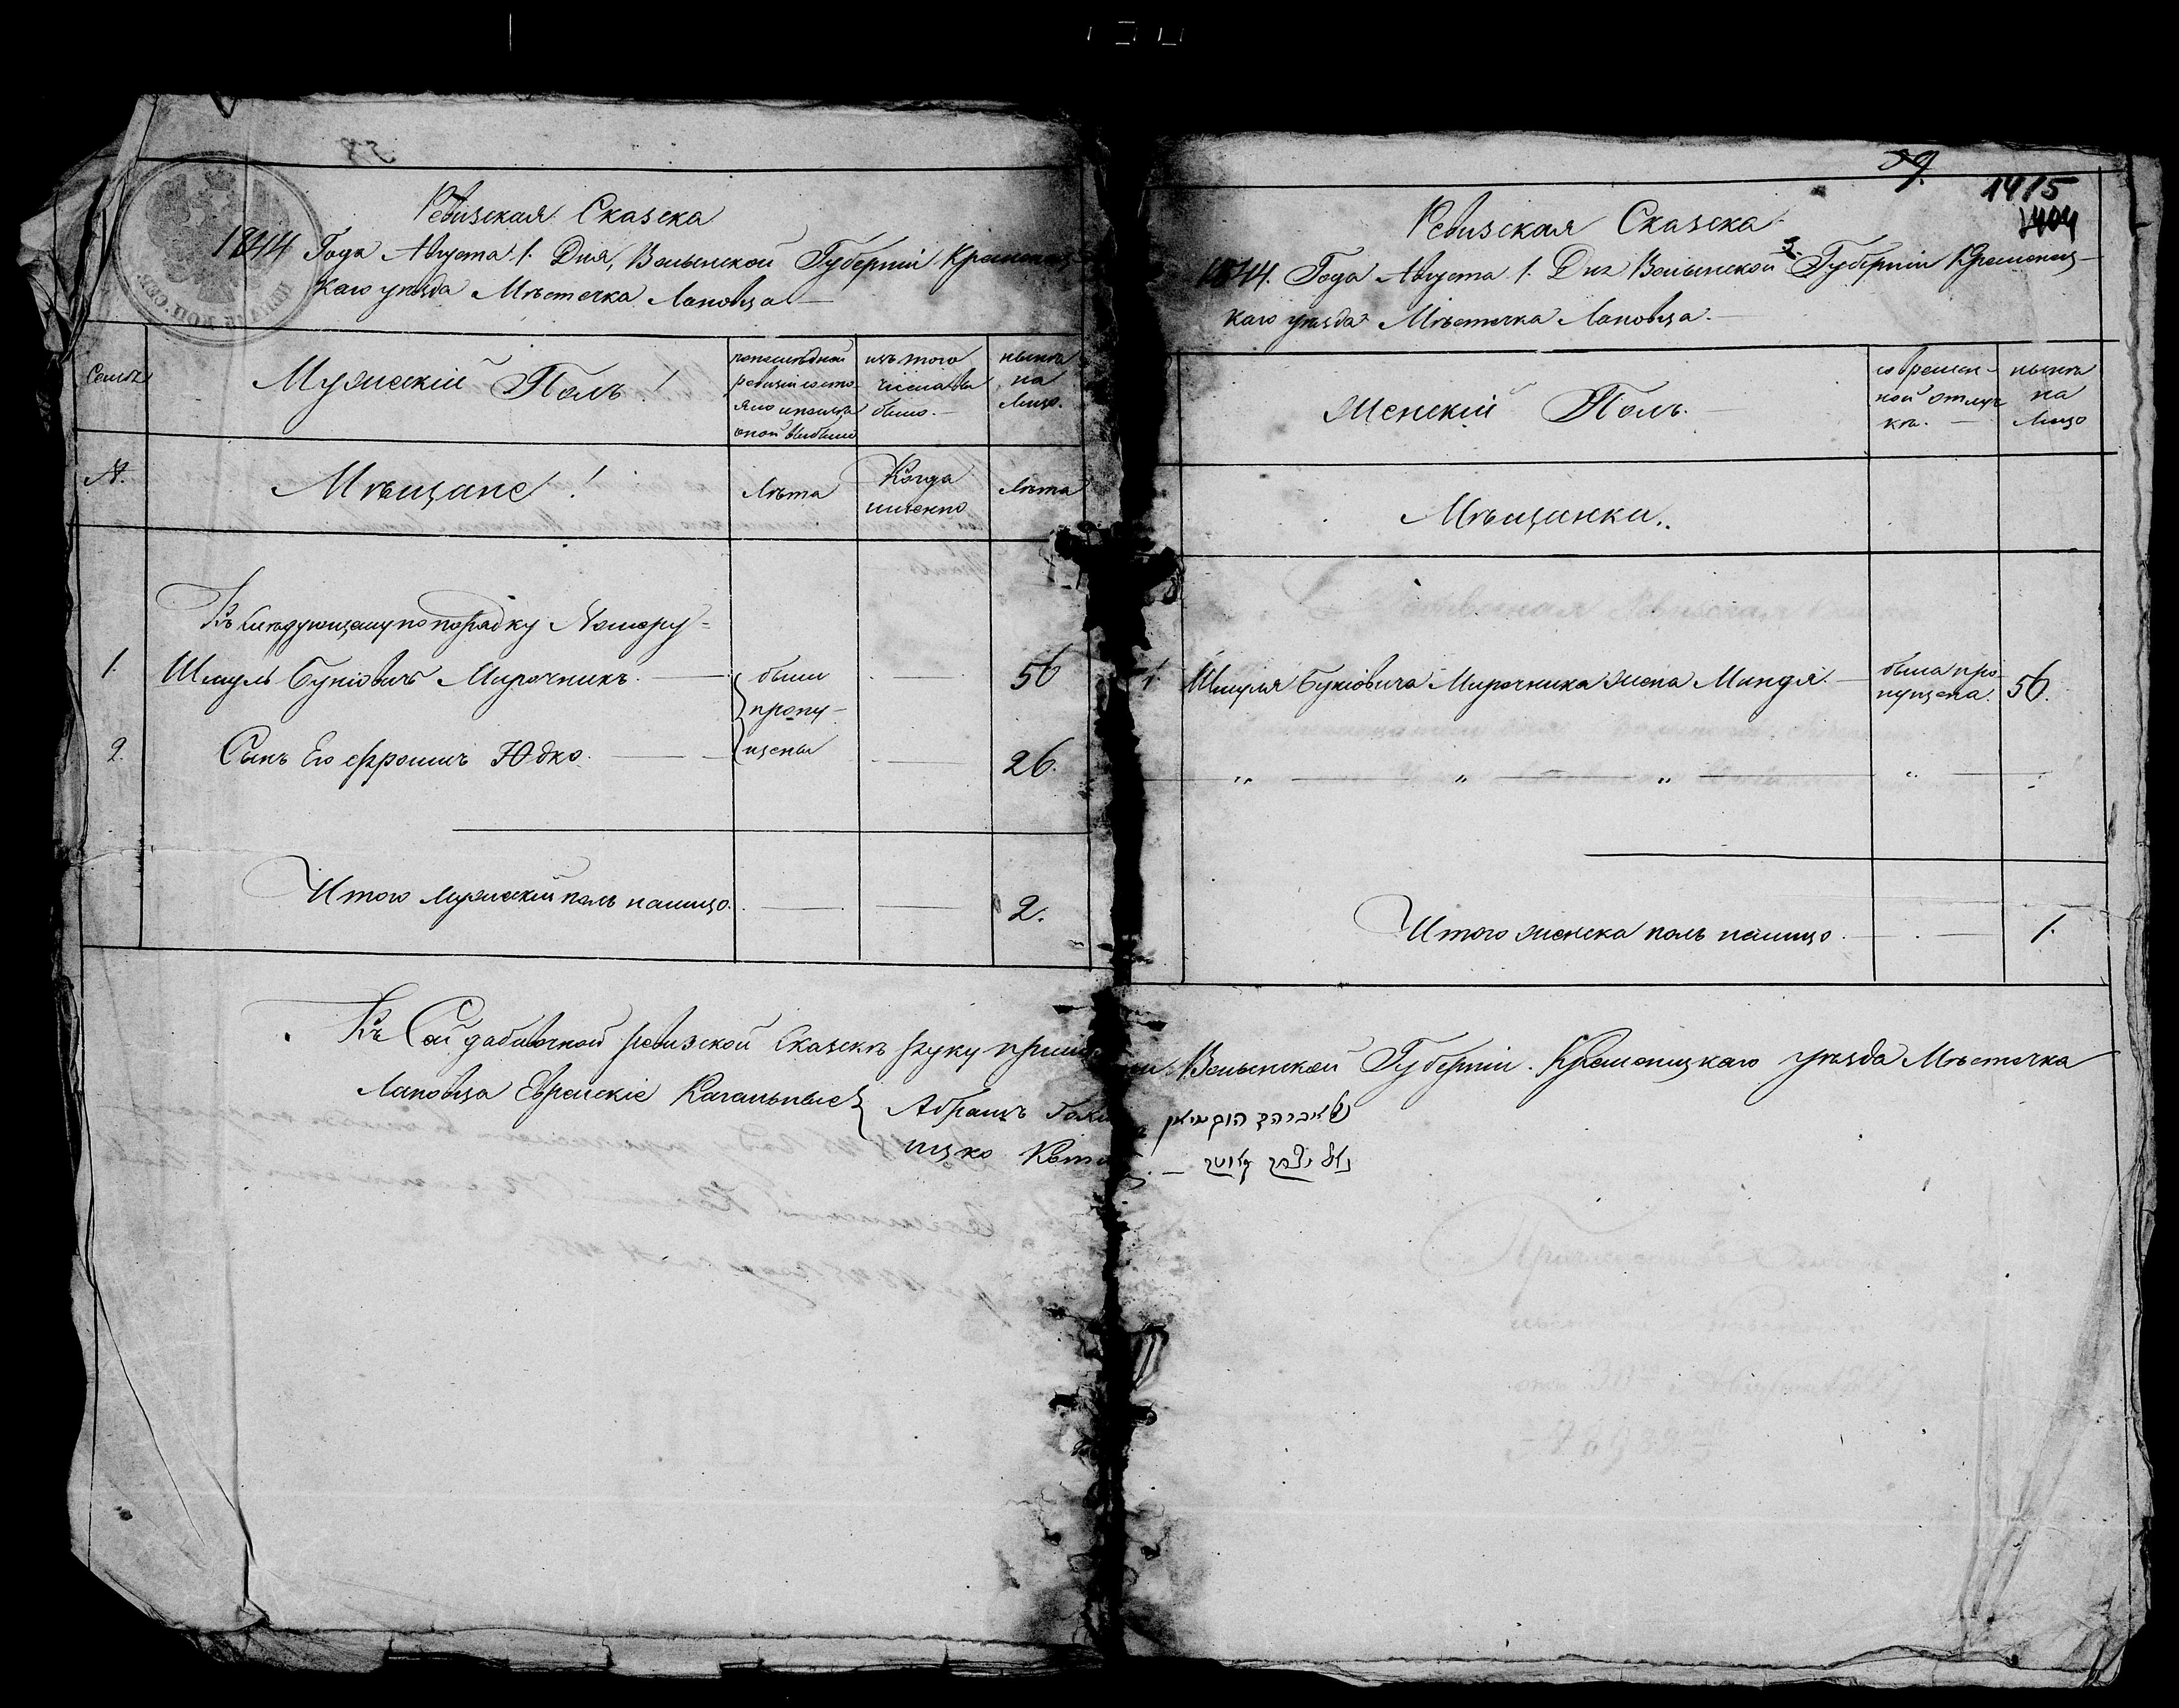 Ревизская Сказска
1844 Года Августа 1. Дня, Волынской Губерніи Кременец
каго уѣзда Мѣстечка Лановца
Семьи
Мужескій Полъ
по последней
ревизіи состо
яло и после
оной выбыло
изъ того
числа вы
было.
нынѣ
на
лицо.
№.
Мѣщане
Лѣта
Когда
именно
Лѣта
Къ Следующему по порядку Номеру
1.
Шмуль Буніовичъ Мирочникъ.
были
пропу-
щены
56
2.
Сынъ Его Фроимъ Юдко.
26.
Итого мужескій полъ налицо.
2.
39.
1415
Ревизская Сказска
1844. Года Августа 1. Дня Волынской Губерніи Кременец-
каго уѣзда Мѣстечка Лановца.
Женскій Полъ.
во времен-
ной отлуч
кѣ.
нынѣ
на
лицо
Мѣщанки.
1
Шмуля Буніовича Мирочника жена Миндя.
была про
пущена.
56.
Итого женска полъ налицо.
1.
Къ Сей добавочной ревизской Сказскѣ руку Волынской Губерніи. Кременецкаго уѣзда Мѣстечка
Лановца Еврейскіе Кагальные Абрамъ
Ицко